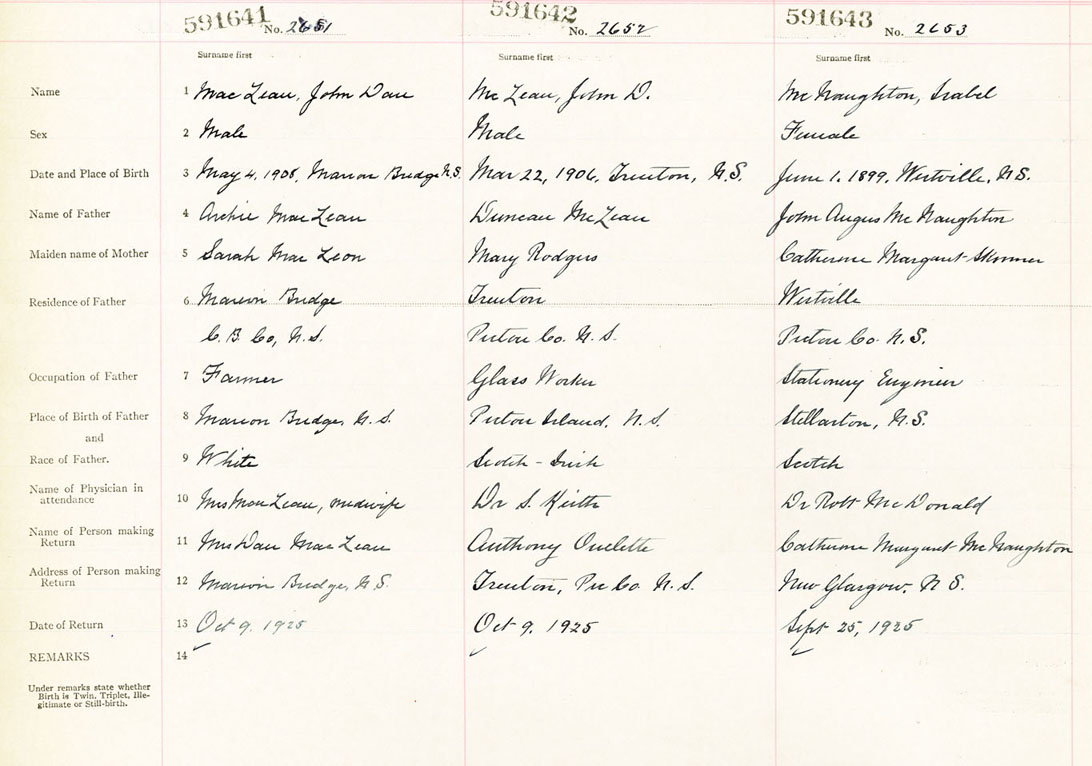 591641 No. 2651 591642 No. 2652 591643 No. 2653
Surname first Surname first Surname first
Name 1 MacLean, John Dan McLean, John D. McNaughton, Isabel
Sex 2 Male Male Female
Date and Place of Birth 3 May 4, 1908, Marion Bridge N.S. Mar 22, 1906, Trenton, N.S. June 1, 1899, Westville, N.S.
Name of Father 4 Archie MacLean Duncan McLean John Angus McNaughton
Maiden name of Mother 5 Sarah MacLeon Mary Rodgers Catherine Margaret Skinner
Residence of Father 6 Marion Bridge Trenton Westville
C. B. Co, N.S. Pictou Co. N.S. Pictou Co. N.S.
Occupation of Father 7 Farmer Glass Worker Stationery Engineer
Place of Birth of Father 8 Marion Bridge, N.S. Pictou Island, N.S. Stellarton, N.S.
and
Race of Father. 9 White Scotch - Irish Scotch
Name of Physician in
attendance 10 Mrs MacLean, midwife Dr S. Keith Dr Robt McDonald
Name of Person making
Return 11 Mrs Dan MacLean Anthony Ouelette Catherine Margaret McNaughton
Address of Person making
Return 12 Marion Bridge, N.S. Trenton, Pic Co. N.S. New Glasgow, N.S.
Date of Return 13 Oct 9, 1925 Oct 9, 1925 Sept 25, 1925
REMARKS 14
Under remarks state whether
Birth is Twin, Triplet, Ille-
gitimate or Still-birth.